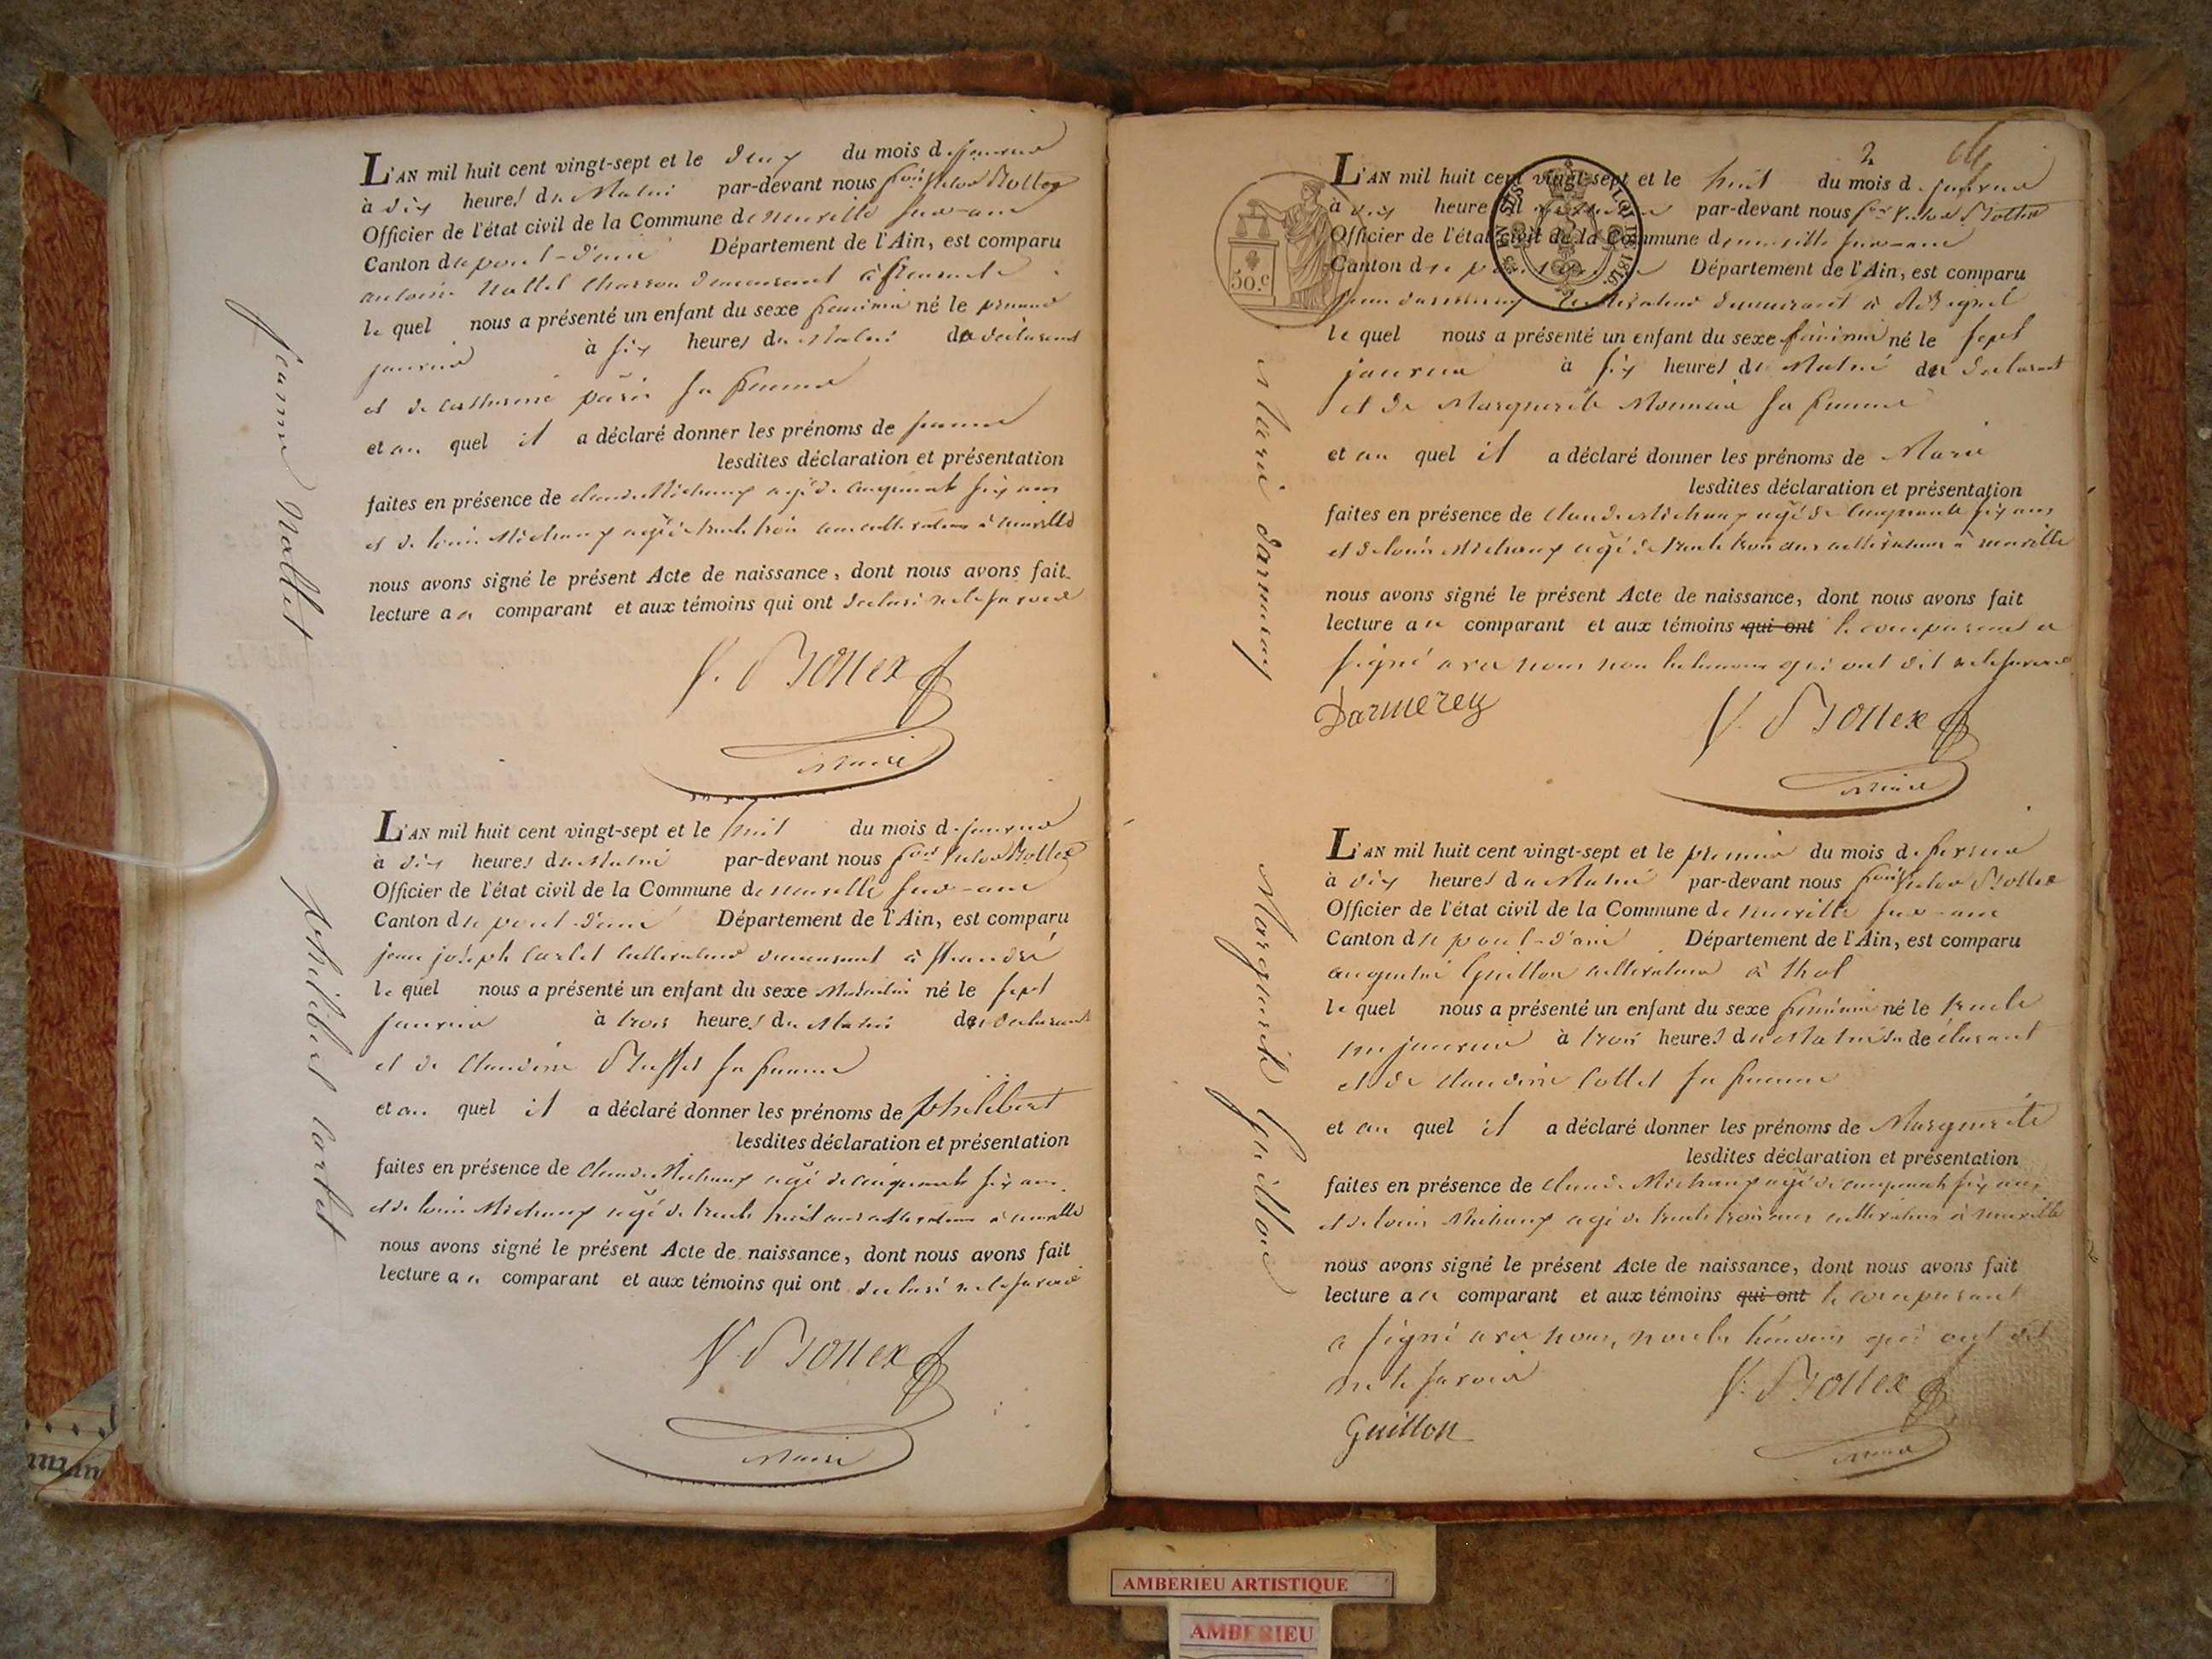 L'AN mil huit cent vingt-sept et le deux du mois de janvier
à dix heures du Matin par-devant nous fcois Victor Bottex
Officier de l'état civil de la Commune de neuville sur-ain
Canton de pont-d'ain Département de l'Ain, est comparu
antoine Nallet Charron demeurant à
le quel nous a présenté un enfant du sexe feminin né le premier
janvier à six heures du Matin du declarant
et de catherine sa femme
et au quel il a déclaré donner les prénoms de jeanne
lesdites déclaration et présentation
faites en présence de claude Michaux agé de cinquante six ans
et de louis Michaux agé de trente trois ans cultivateurs à neuville
nous avons signé le présent Acte de naissance, dont nous avons fait
lecture au comparant et aux témoins qui ont declaré ne le savoir
V. Bottex
Maire
jeanne Nallet
L'AN mil huit cent vingt-sept et le huit du mois de janvier
à dix heures du Matin par-devant nous fcois Victor Bottex
Officier de l'état civil de la Commune de neuville sur-ain
Canton de pont-d'ain Département de l'Ain, est comparu
jean joseph Carlet cultivateur demeurant à st andré
le quel nous a présenté un enfant du sexe Masculin né le sept
janvier à trois heures du Matin du declarant
et de Claudine sa femme
et au quel il a déclaré donner les prénoms de philibert
lesdites déclaration et présentation
faites en présence de Claude Michaux agé de cinquante six ans
et de louis Michaux agé de trente huit ans cultivateurs à neuville
nous avons signé le présent Acte de naissance, dont nous avons fait
lecture au comparant et aux témoins qui ont declaré ne le savoir
V. Bottex
Maire
philibert carlet
2
50.c
L'AN mil huit cent vingt-sept et le huit du mois de janvier
à dix heure par-devant nous fcois Victor Bottex
Officier de l'état civil de la Commune de neuville sur-ain
Canton de Département de l'Ain, est comparu
cultivateur demeurant à
le quel nous a présenté un enfant du sexe féminin né le sept
janvier à six heures du Matin du declarant
et de Marguerite sa femme
et au quel il a déclaré donner les prénoms de Marie
lesdites déclaration et présentation
faites en présence de claude Michaux agé de cinquante six ans
et de louis Michaux agé de trente trois ans cultivateurs à neuville
nous avons signé le présent Acte de naissance, dont nous avons fait
lecture au comparant et aux témoins qui ont le comparant a
signé avec nous non les temoins qui ont dit ne le savoir
Darmerey
V. Bottex
Maire
Marie darmerey
L'AN mil huit cent vingt-sept et le premier du mois de fevrier
à dix heures du Matin par-devant nous fcois Victor Bottex
Officier de l'état civil de la Commune de neuville sur-ain
Canton de pont-d'ain Département de l'Ain, est comparu
augustin Guillon cultivateur à thol
le quel nous a présenté un enfant du sexe féminin né le trente
un janvier à trois heures du Matin du declarant
et de claudine Collet sa femme
et au quel il a déclaré donner les prénoms de Marguerite
lesdites déclaration et présentation
faites en présence de claude Michaux agé de cinquante six ans
et de louis Michaux agé de trente trois ans cultivateurs à neuville
nous avons signé le présent Acte de naissance, dont nous avons fait
lecture au comparant et aux témoins qui ont le comparant
a signé avec nous, non les témoins qui ont dit
ne le savoir
Guillon
V. Bottex
Maire
Marguerite Guillon
AMBERIEU ARTISTIQUE
AMBERIEU